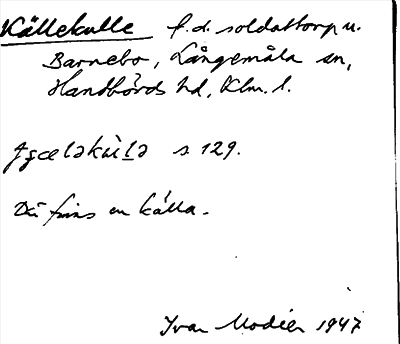 Källekulle f.d. soldattorp u.
Barnebo, Långemåla sn,
Handbörds hd, Klm. l.
s 129.
Där finns en källa.
Ivar Modéer 1947